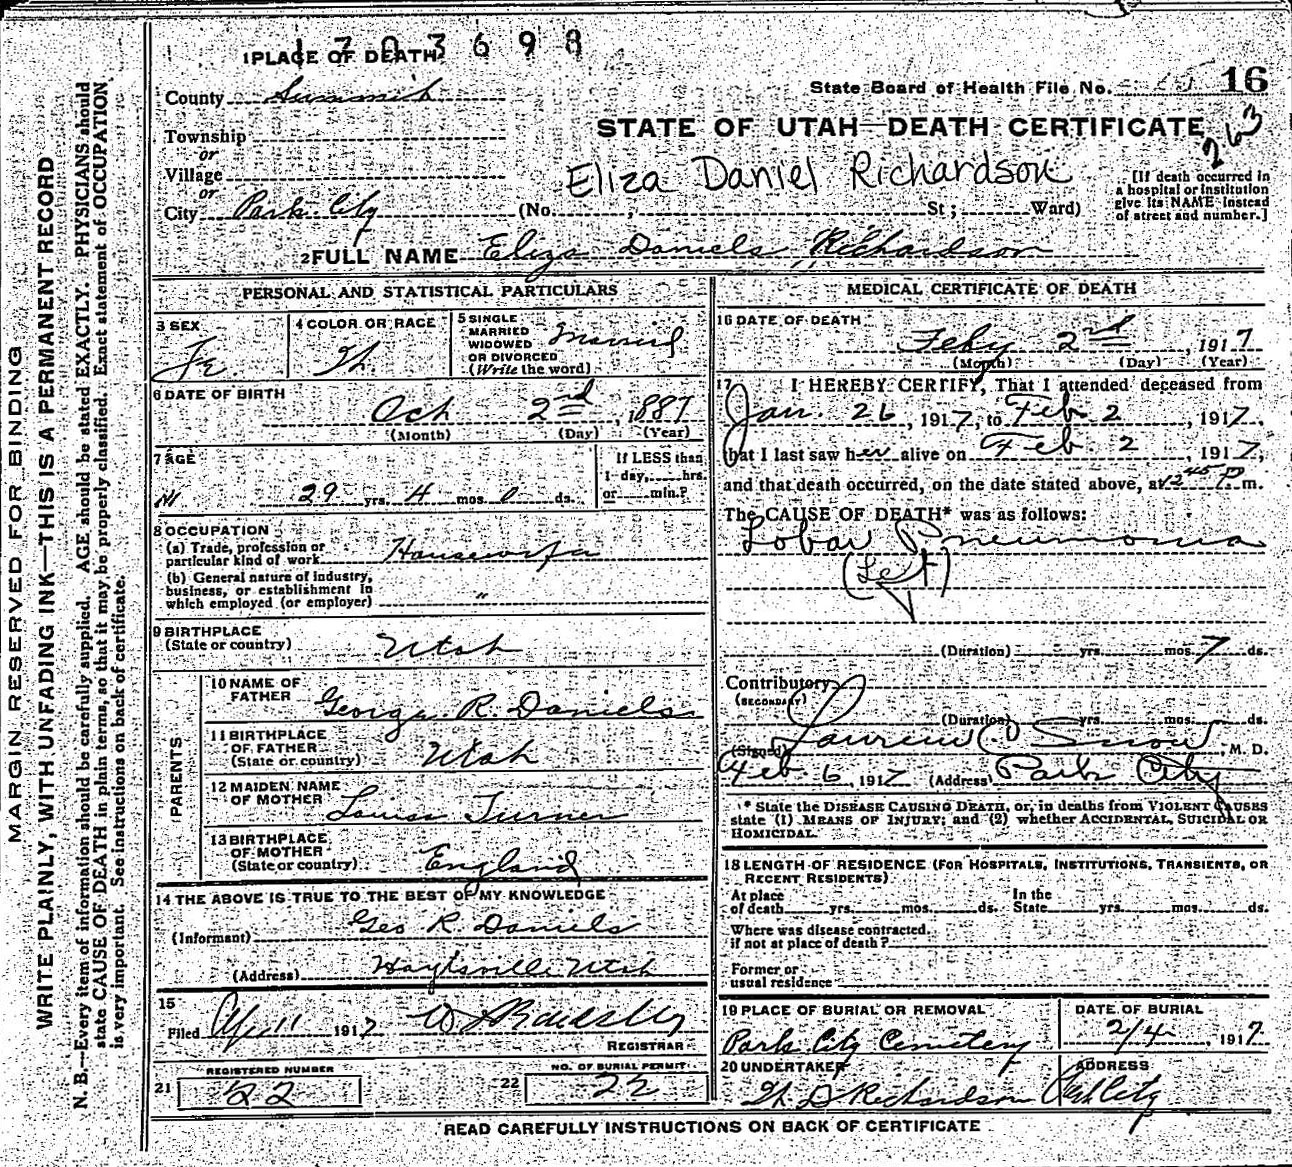 1703698
1 PLACE OF DEATH
County Summit
State Board of Health File No. 16
263
Township
or
Village
or
City Park City
STATE OF UTAH—DEATH CERTIFICATE
Eliza Daniel Richardson
(No. ; St ; Ward)
[If death occurred in
a hospital or institution
give its NAME instead
of street and number.]
2 FULL NAME Eliza Daniels Richardson
PERSONAL AND STATISTICAL PARTICULARS
3 SEX
Fe
4 COLOR OR RACE
Wh
5 SINGLE
MARRIED
WIDOWED
OR DIVORCED
(Write the word)
Married
6 DATE OF BIRTH
Oct 2nd, 1887
(Month) (Day) (Year)
7 AGE
29 yrs. 4 mos. 0 ds.
If LESS than
1 day, hrs.
or min.?
8 OCCUPATION
(a) Trade, profession or
particular kind of work Housewife
(b) General nature of industry,
business, or establishment in
which employed (or employer) "
9 BIRTHPLACE
(State or country) Utah
PARENTS
10 NAME OF
FATHER George R. Daniels
11 BIRTHPLACE
OF FATHER
(State or country) Utah
12 MAIDEN NAME
OF MOTHER Louisa Turner
13 BIRTHPLACE
OF MOTHER
(State or country) England
14 THE ABOVE IS TRUE TO THE BEST OF MY KNOWLEDGE
(Informant) Geo R. Daniels
(Address) Hoytsville Utah
15
Filed 11 1917
REGISTRAR
REGISTERED NUMBER
21 22
NO. OF BURIAL PERMIT
22 22
MEDICAL CERTIFICATE OF DEATH
16 DATE OF DEATH
Feby 2nd, 1917
(Month) (Day) (Year)
17 I HEREBY CERTIFY, That I attended deceased from
Jan. 26, 1917, to Feb 2, 1917,
that I last saw her alive on Feb 2, 1917,
and that death occurred, on the date stated above, at 12 45 P m.
The CAUSE OF DEATH* was as follows:
Lobar Pneumonia
(Left)
(Duration) yrs. mos. 7 ds.
Contributory
(SECONDARY)
(Duration) yrs. mos. ds.
(Signed) Snow, M. D.
Feb. 6, 1917 (Address) Park City
* State the DISEASE CAUSING DEATH, or, in deaths from VIOLENT CAUSES
state (1) MEANS OF INJURY; and (2) whether ACCIDENTAL, SUICIDAL OR
HOMICIDAL.
18 LENGTH OF RESIDENCE (FOR HOSPITALS, INSTITUTIONS, TRANSIENTS, OR
RECENT RESIDENTS)
At place
of death yrs. mos. ds.
In the
State yrs. mos. ds.
Where was disease contracted,
if not at place of death?
Former or
usual residence
19 PLACE OF BURIAL OR REMOVAL
Park City Cemetery
DATE OF BURIAL
2/4, 1917
20 UNDERTAKER
Richardson
ADDRESS
Park City
READ CAREFULLY INSTRUCTIONS ON BACK OF CERTIFICATE
MARGIN RESERVED FOR BINDING
WRITE PLAINLY, WITH UNFADING INK—THIS IS A PERMANENT RECORD
N. B.—Every item of information should be carefully supplied. AGE should be stated EXACTLY. PHYSICIANS should
state CAUSE OF DEATH in plain terms, so that it may be properly classified. Exact statement of OCCUPATION
is very important. See instructions on back of certificate.